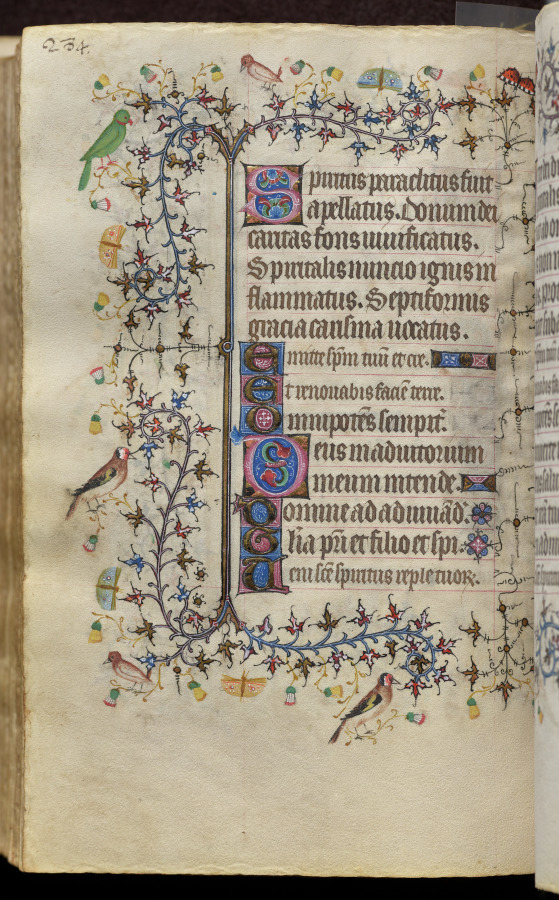 234.
Spiritus paraclitus fuit
apellatus. Donum dei
caritas fons uiuificatus.
Spiritalis unctio ignis in
flammatus. Septiformis
gracia carisma uocatus.
Emitte sp̄m tuū et cre.
Et renouabis faciē terre.
Omnipotēs sempit̄.
Deus in adiutorium
meum intende.
Domine ad adiuuād̄.
Gl̄ia pr̄i et filio et spi.
Ueni sc̄e spiritus reple tuor.